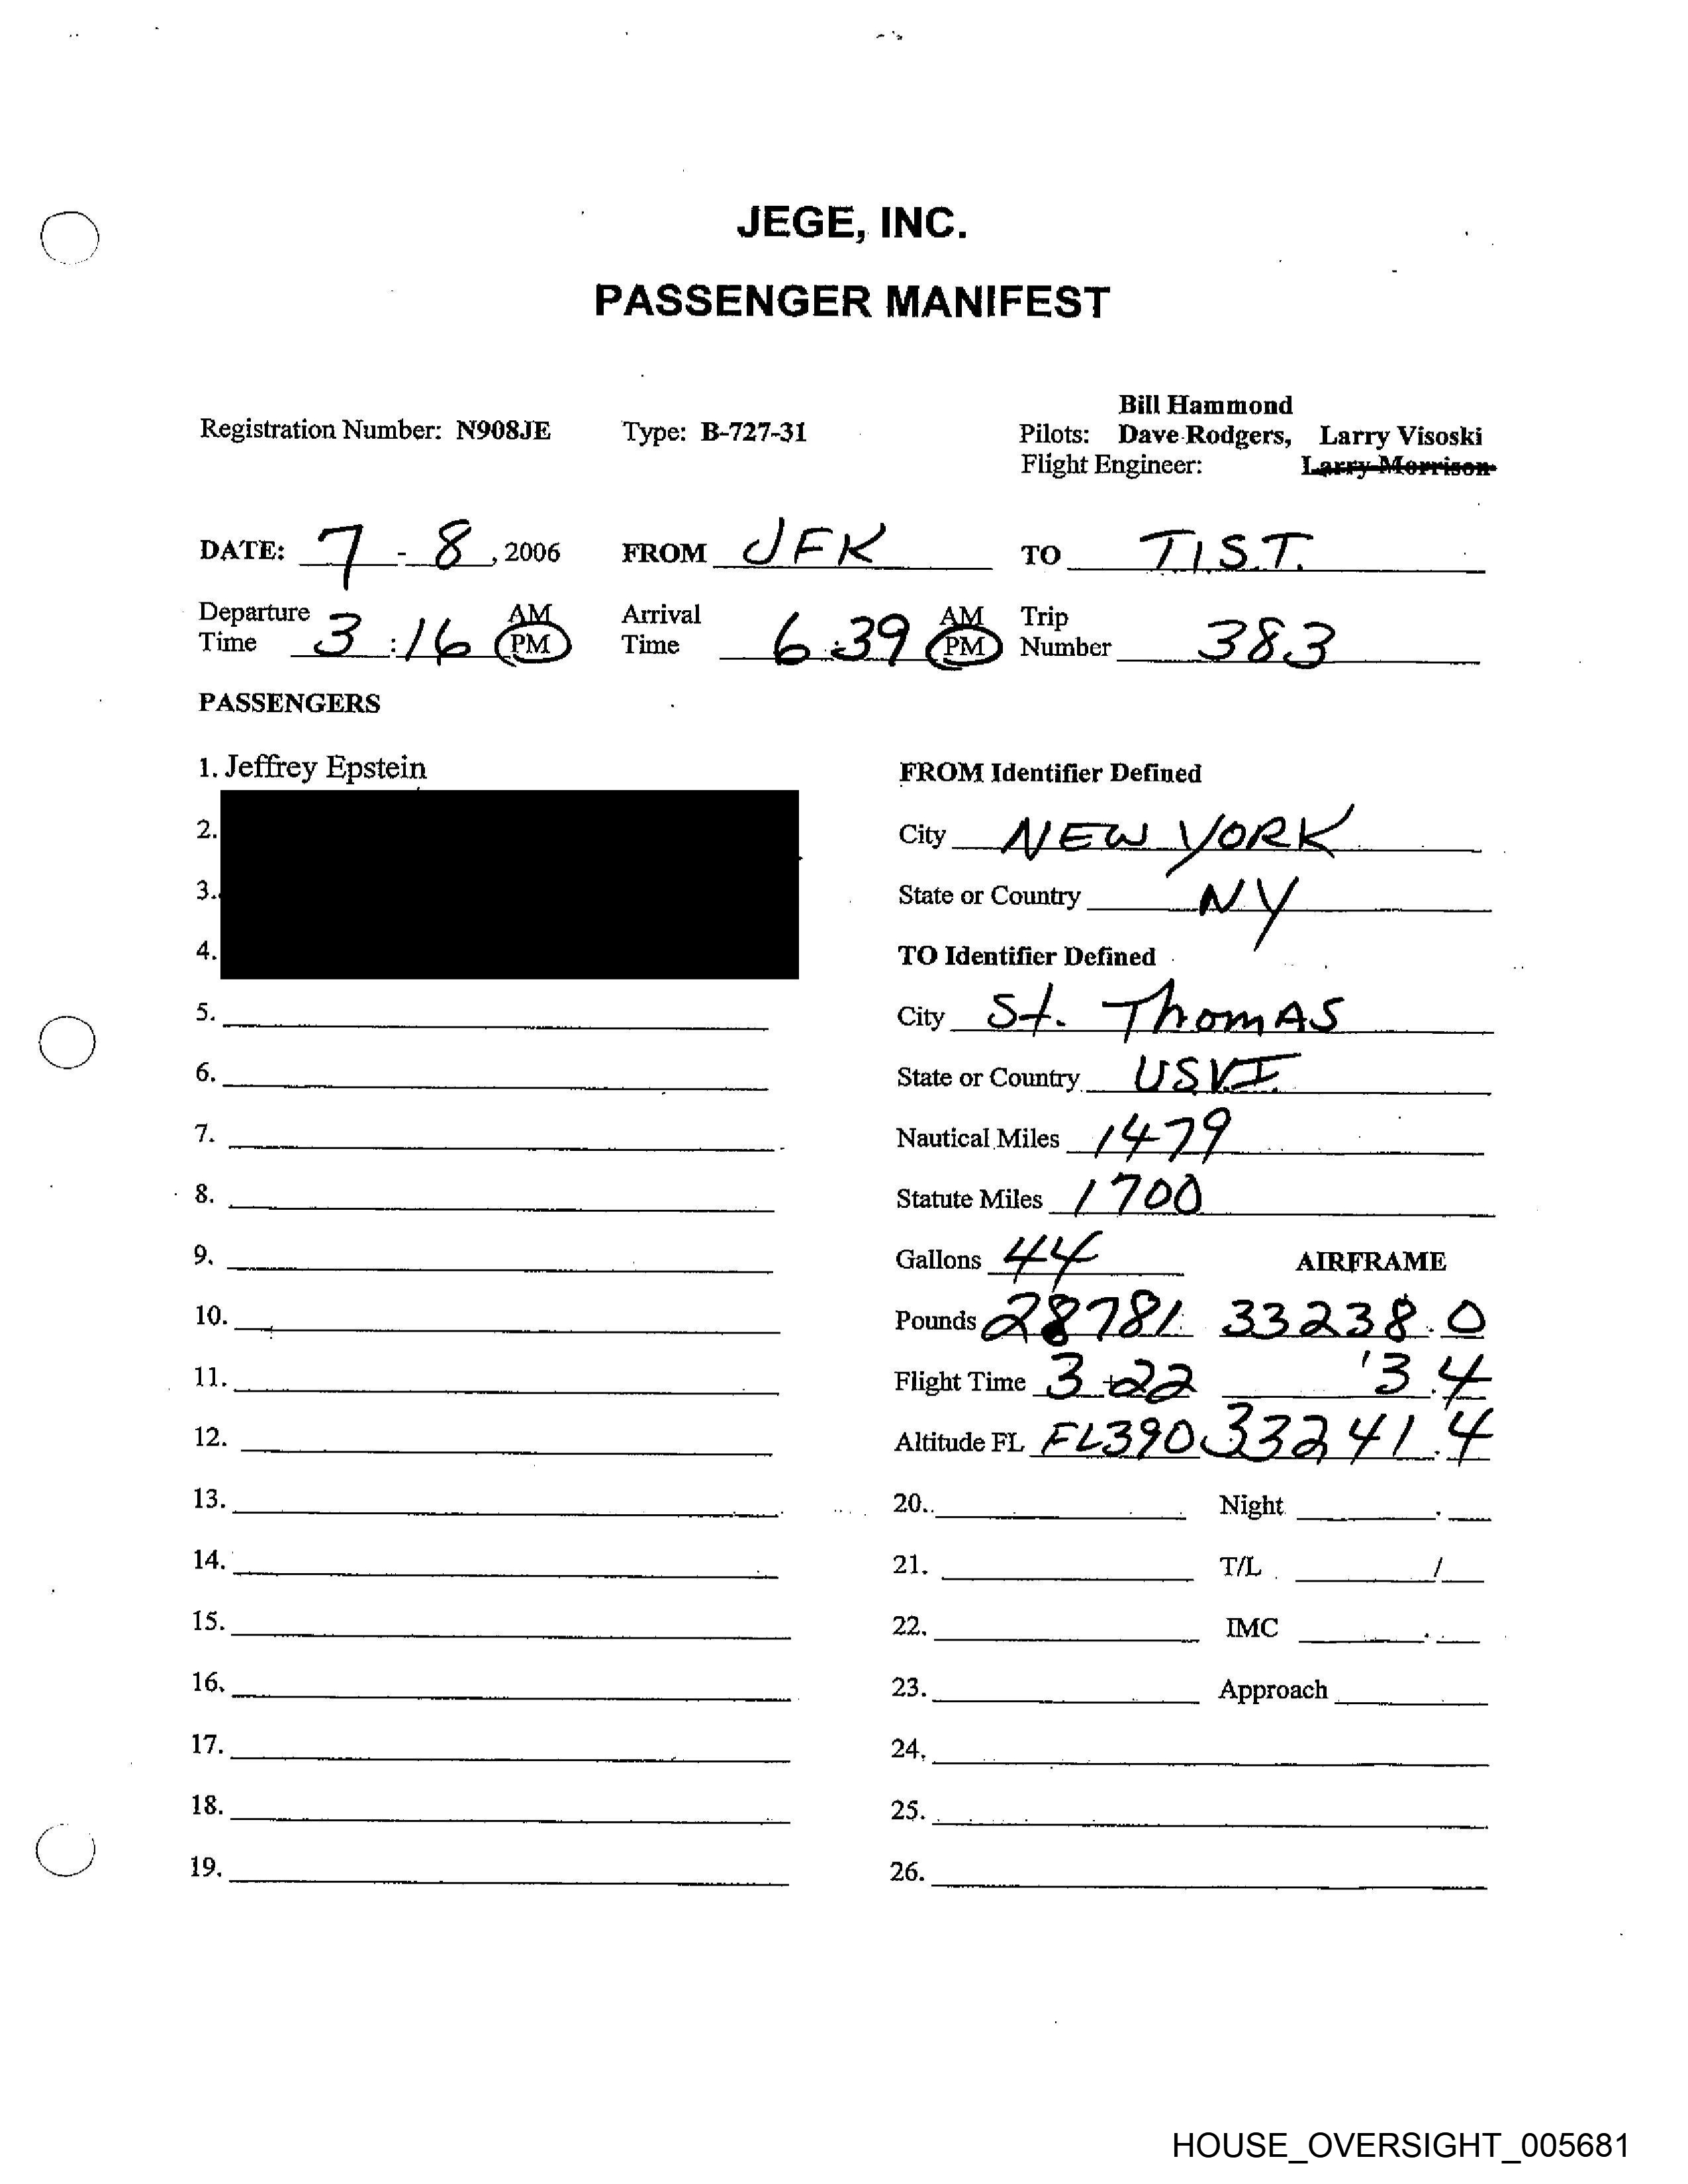 JEGE, INC.
PASSENGER MANIFEST
Bill Hammond
Registration Number: N908JE Type: B-727-31 Pilots: Dave Rodgers, Larry Visoski
Flight Engineer: Larry Morrison
DATE: 7 - 8, 2006 FROM JFK TO T.I.S.T.
Departure Time 3:16 AM PM Arrival Time 6:39 AM PM Trip Number 383
PASSENGERS
1. Jeffrey Epstein
2.
3.
4.
5.
6.
7.
8.
9.
10.
11.
12.
13.
14.
15.
16.
17.
18.
19.
FROM Identifier Defined
City NEW YORK
State or Country NY
TO Identifier Defined
City St. ThomAS
State or Country USVI
Nautical Miles 1479
Statute Miles 1700
Gallons 44 AIRFRAME
Pounds 28781 33238.0
Flight Time 3+22 3.4
Altitude FL FL390 33241.4
20. Night .
21. T/L /
22. IMC .
23. Approach
24.
25.
26.
HOUSE_OVERSIGHT_005681